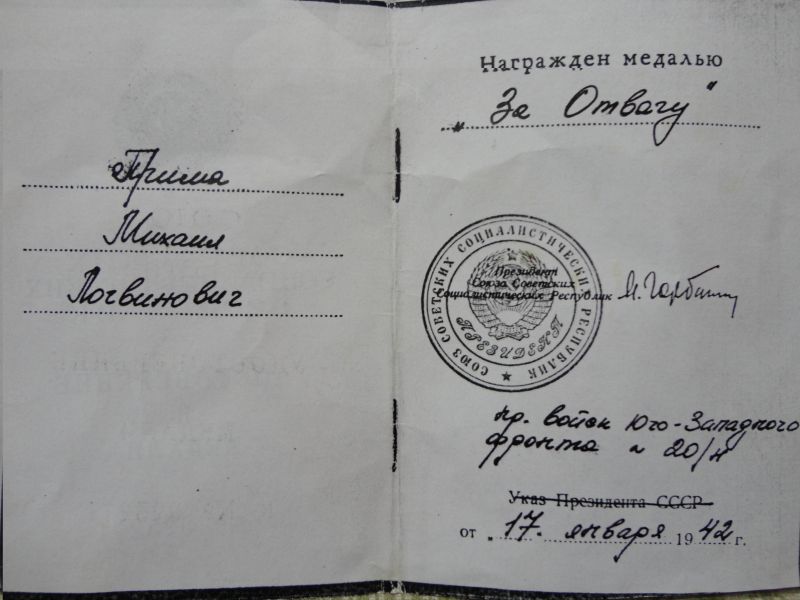 Прима
Михаил
Логвинович
Награжден медалью
„За Отвагу"
СОЮЗ СОВЕТСКИХ СОЦИАЛИСТИЧЕСКИХ РЕСПУБЛИК
Президент
Союза Советских
Социалистических Республик
М. Горбачев
ПРЕЗИДЕНТ
пр. войск Юго-Западного
фронта № 20/н
Указ Президента СССР
от „17. января 1942 г.